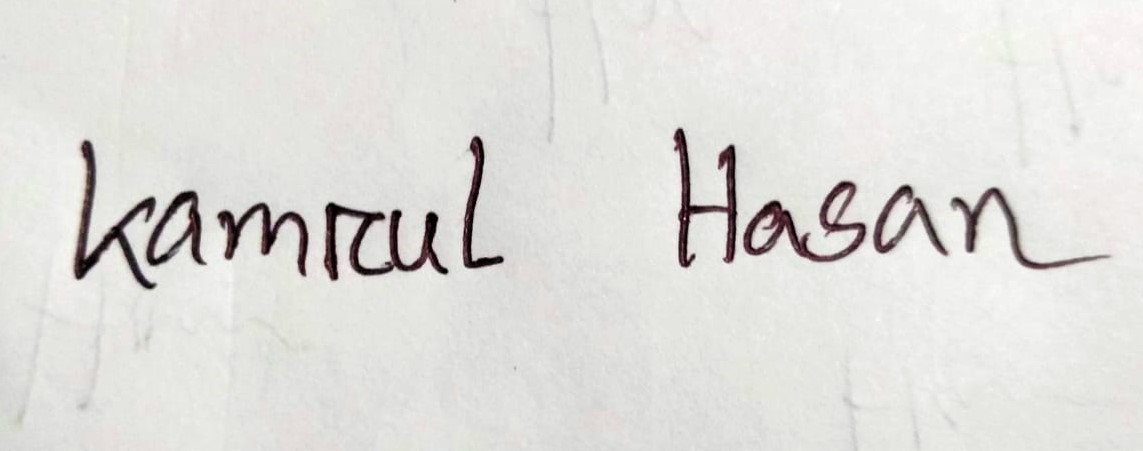 Kamrul Hasan